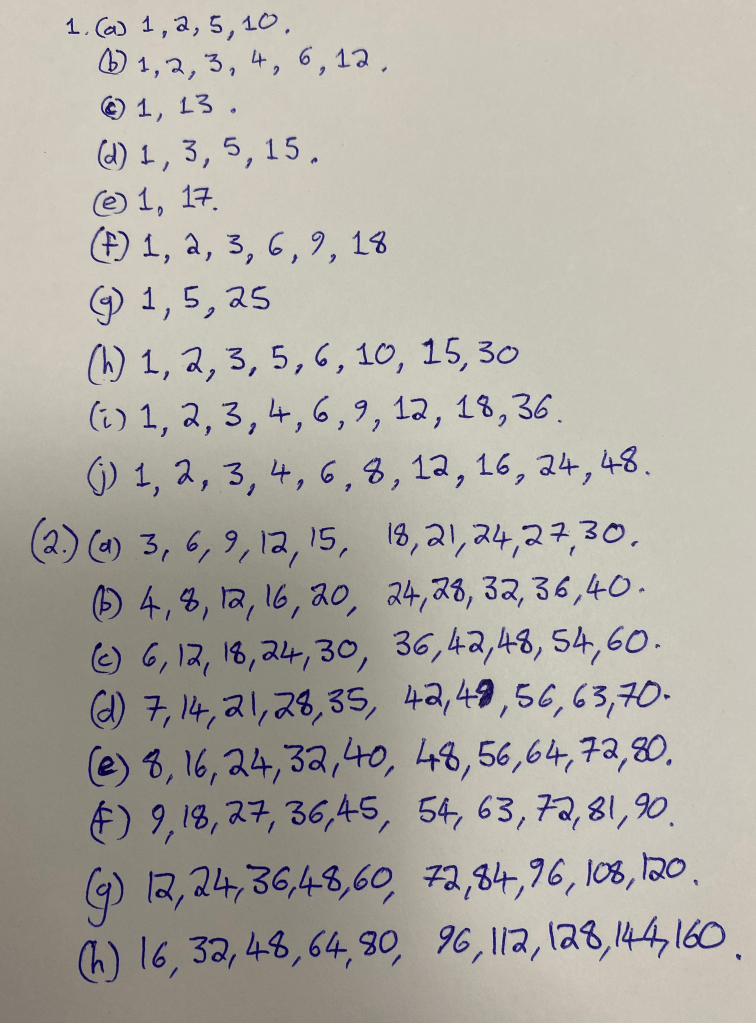 1. (a) 1, 2, 5, 10.
(b) 1, 2, 3, 4, 6, 12.
(c) 1, 13.
(d) 1, 3, 5, 15.
(e) 1, 17.
(f) 1, 2, 3, 6, 9, 18
(g) 1, 5, 25
(h) 1, 2, 3, 5, 6, 10, 15, 30
(i) 1, 2, 3, 4, 6, 9, 12, 18, 36.
(j) 1, 2, 3, 4, 6, 8, 12, 16, 24, 48.
(2.) (a) 3, 6, 9, 12, 15, 18, 21, 24, 27, 30.
(b) 4, 8, 12, 16, 20, 24, 28, 32, 36, 40.
(c) 6, 12, 18, 24, 30, 36, 42, 48, 54, 60.
(d) 7, 14, 21, 28, 35, 42, 49, 56, 63, 70.
(e) 8, 16, 24, 32, 40, 48, 56, 64, 72, 80.
(f) 9, 18, 27, 36, 45, 54, 63, 72, 81, 90.
(g) 12, 24, 36, 48, 60, 72, 84, 96, 108, 120.
(h) 16, 32, 48, 64, 80, 96, 112, 128, 144, 160.